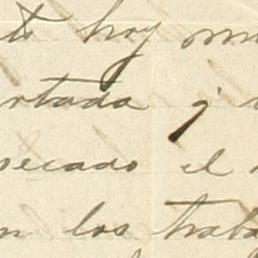 hoy
rtada y
secado el
los traba